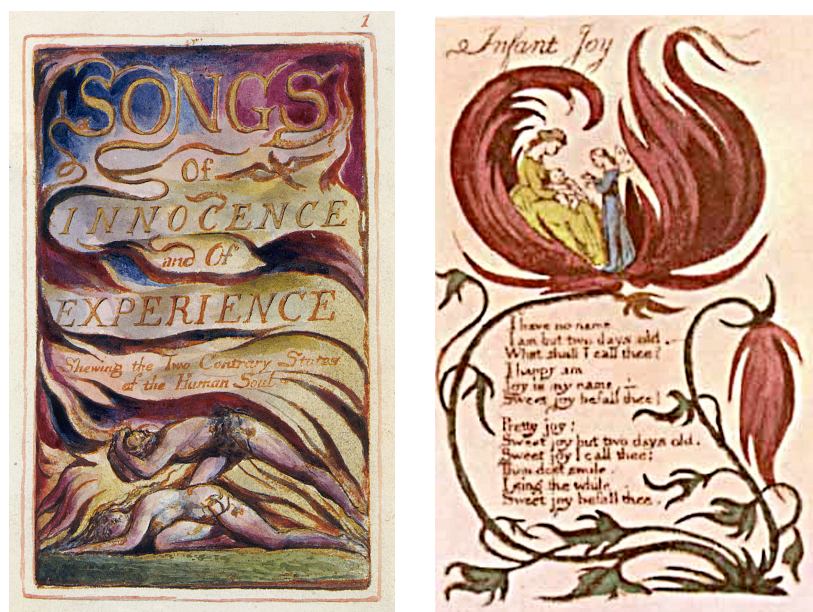 1
SONGS
Of
INNOCENCE
and Of
EXPERIENCE
Shewing the Two Contrary States
of the Human Soul
Infant Joy
I have no name
I am but two days old.
What shall I call thee?
I happy am
Joy is my name.
Sweet joy befall thee!
Pretty joy!
Sweet joy but two days old.
Sweet joy I call thee:
Thou dost smile.
I sing the while
Sweet joy befall thee.